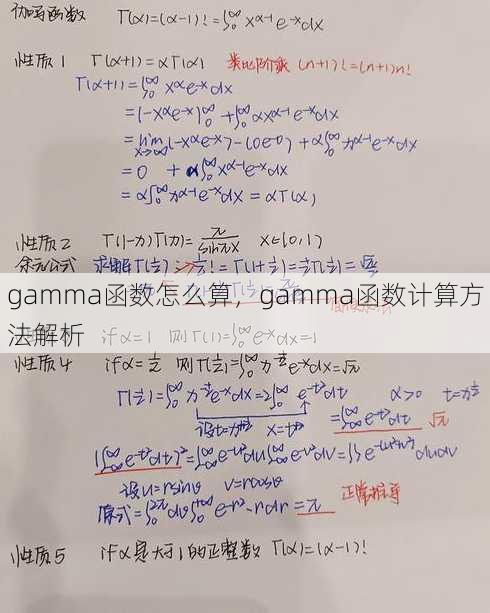 伽玛函数 Γ(α)=(α-1)!=∫₀^∞ x^(α-1) e^(-x) dx
性质1 Γ(α+1)=αΓ(α) 类比阶乘 (n+1)!=(n+1)n!
Γ(α+1)=∫₀^∞ x^α e^(-x) dx
=(-x^α e^(-x))|₀^∞ +∫₀^∞ αx^(α-1) e^(-x) dx
=lim x→∞ (-x^α e^(-x))-(0e^(-0))+α∫₀^∞ x^(α-1) e^(-x) dx
=0 +α∫₀^∞ x^(α-1) e^(-x) dx
=α∫₀^∞ x^(α-1) e^(-x) dx=αΓ(α)
性质2 Γ(1-x)Γ(x)=π/sinπx x∈(0,1)
余元公式 求解Γ(½)→½!=Γ(1+½)=½Γ(½)=√π/2
gamma函数怎么算，gamma函数计算方
法解析
if α=1 则Γ(1)=∫₀^∞ e^(-x) dx=1
性质4 if α=½ 则Γ(½)=∫₀^∞ x^(-½) e^(-x) dx=√π
Γ(½)=∫₀^∞ x^(-½) e^(-x) dx=2∫₀^∞ e^(-t²) dt α>0 t=x^½
设t=x^½ x=t² =∫₋∞^∞ e^(-t²) dt √π
(∫₋∞^∞ e^(-t²) dt)²=∫₋∞^∞ e^(-u²) du∫₋∞^∞ e^(-v²) dv=∫∫e^(-(u²+v²)) dudv
设u=rsinθ v=rcosθ
原式=∫₀^2π dθ∫₀^+∞ e^(-r²)·rdr=π
性质5 if α是大于1的正整数 Γ(α)=(α-1)!